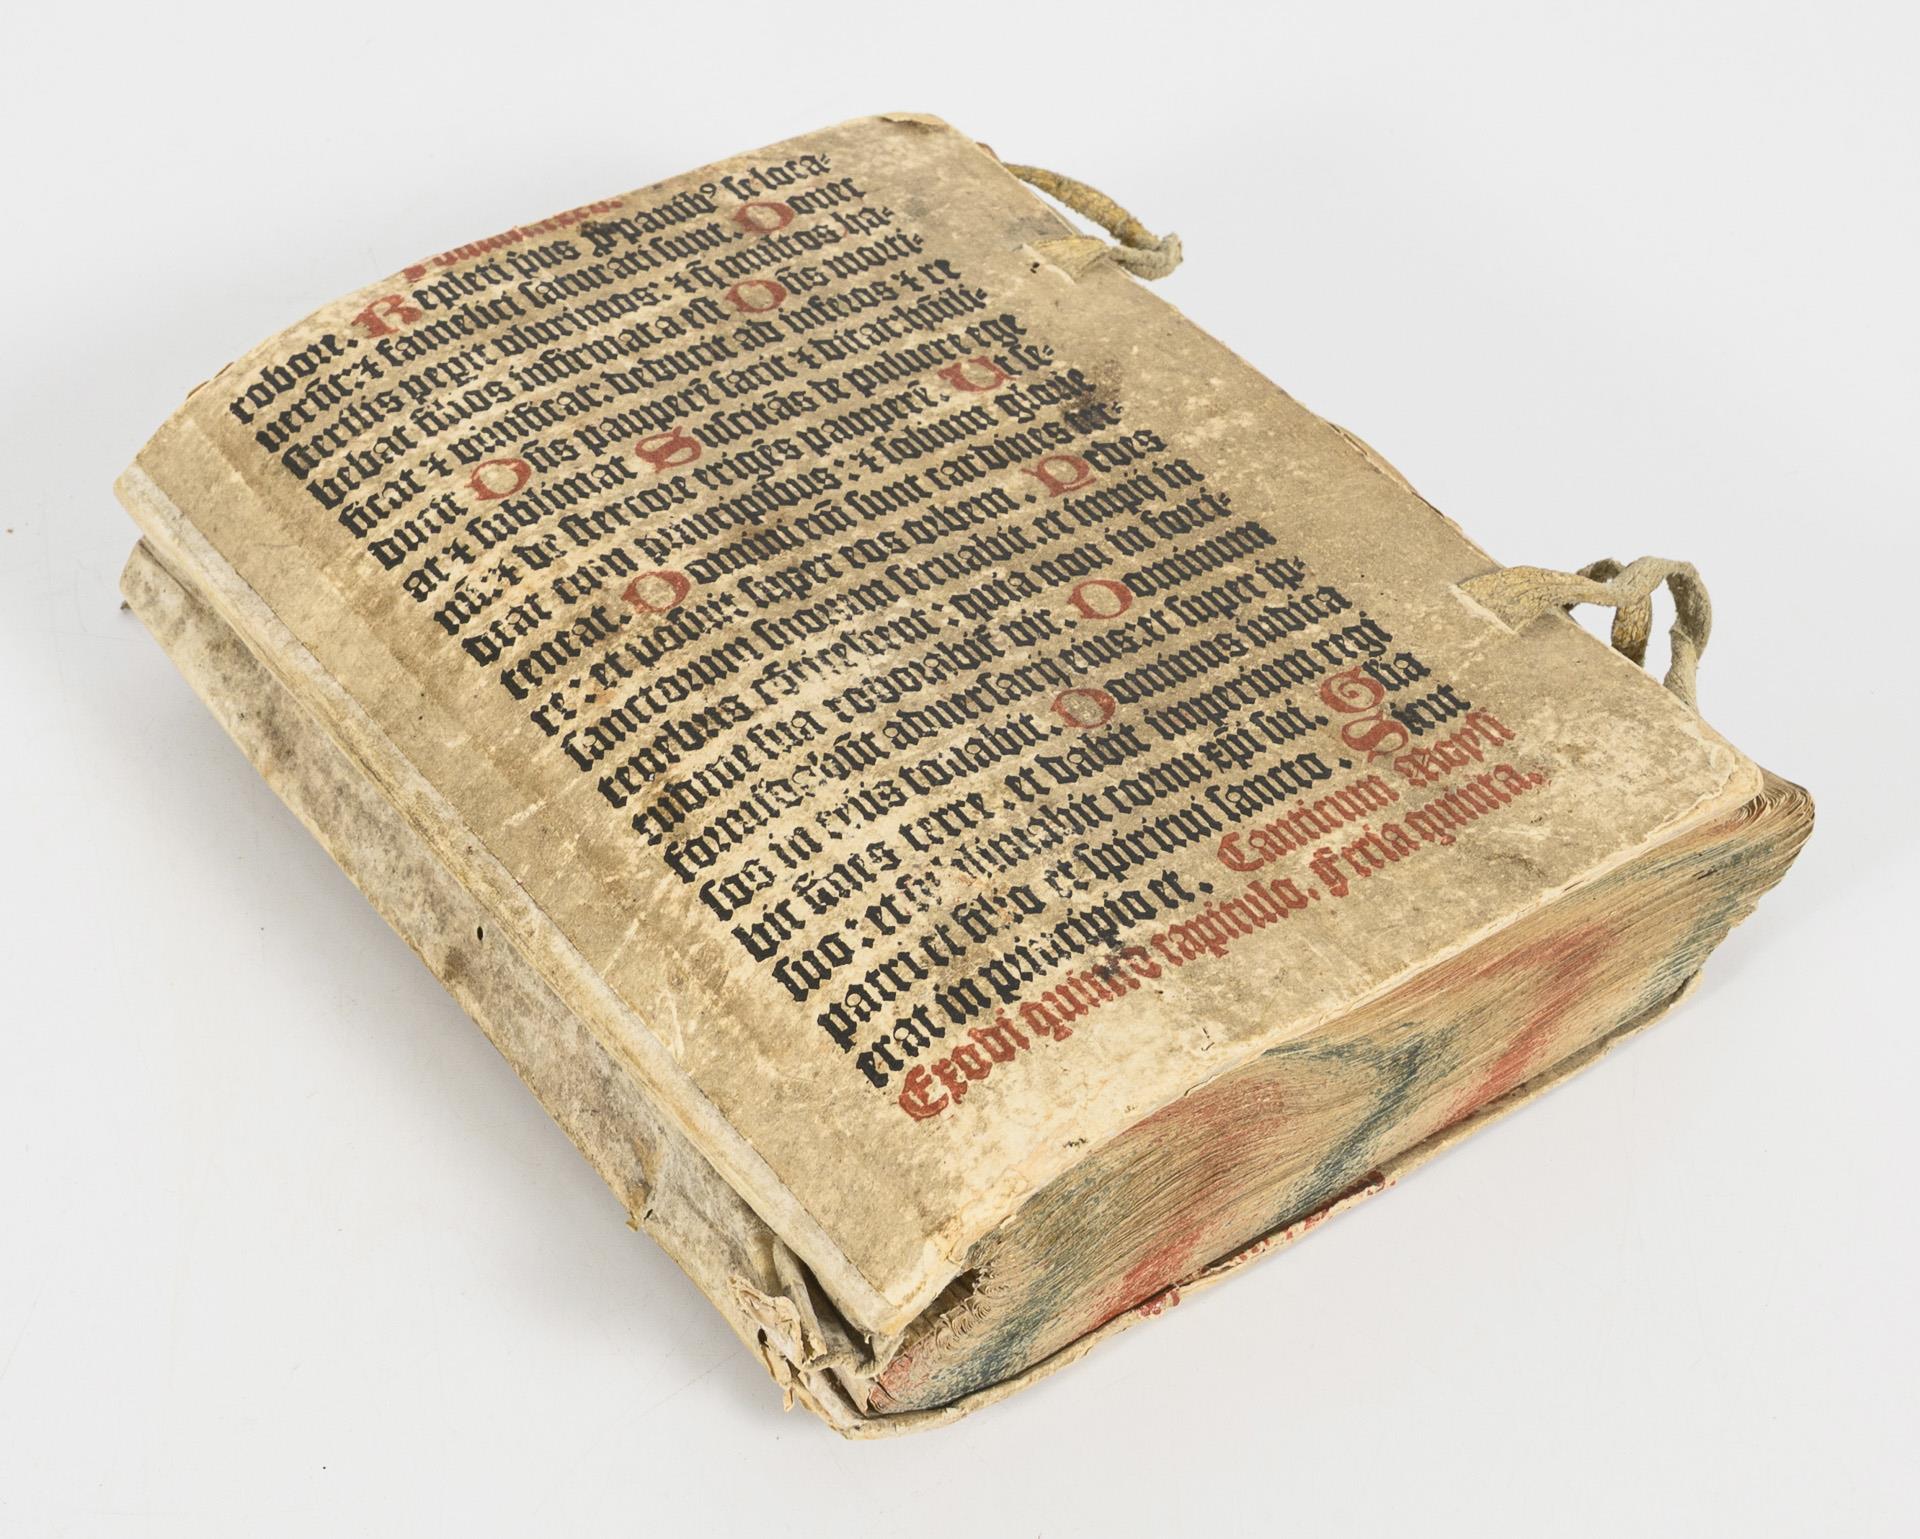 robore. Repleti pius ꝓ panibꝰ se loca-
uerūt: ⁊ famelici saturati sunt. Donec
sterilis peperit plurimos: ⁊ q̄ multos ha-
bebat filios infirmata est Dn̄s morti-
ficat ⁊ viuificat: deducit ad inferos ⁊ re
ducit Dn̄s pauperē facit ⁊ ditat: hūili-
at ⁊ sublimat Suscitās de puluere ege
nū: ⁊ de stercore erigēs pauperē. Ut se-
deat cum principibus: ⁊ solium glorie
teneat. Domini eni sunt cardines ter-
re: et posuit super eos orbem. Pedes
sanctorum suorum seruabit. et impij in
tenebris cōticescent: quia non in forti-
tudine sua roborabit̄ vir. Dominum
formidabūt aduersarij eius: et super ip-
sos in celis tonabit. Dominus iudica
bit fines terre, et dabit imperium regi
suo: et sublimabit cornu xp̄i sui. Glia
patri et filio et spiritui sancto. Sicut
erat in principio et. Canticum Moysi
Exodi quinto capitulo. ꝙ feria quinta.